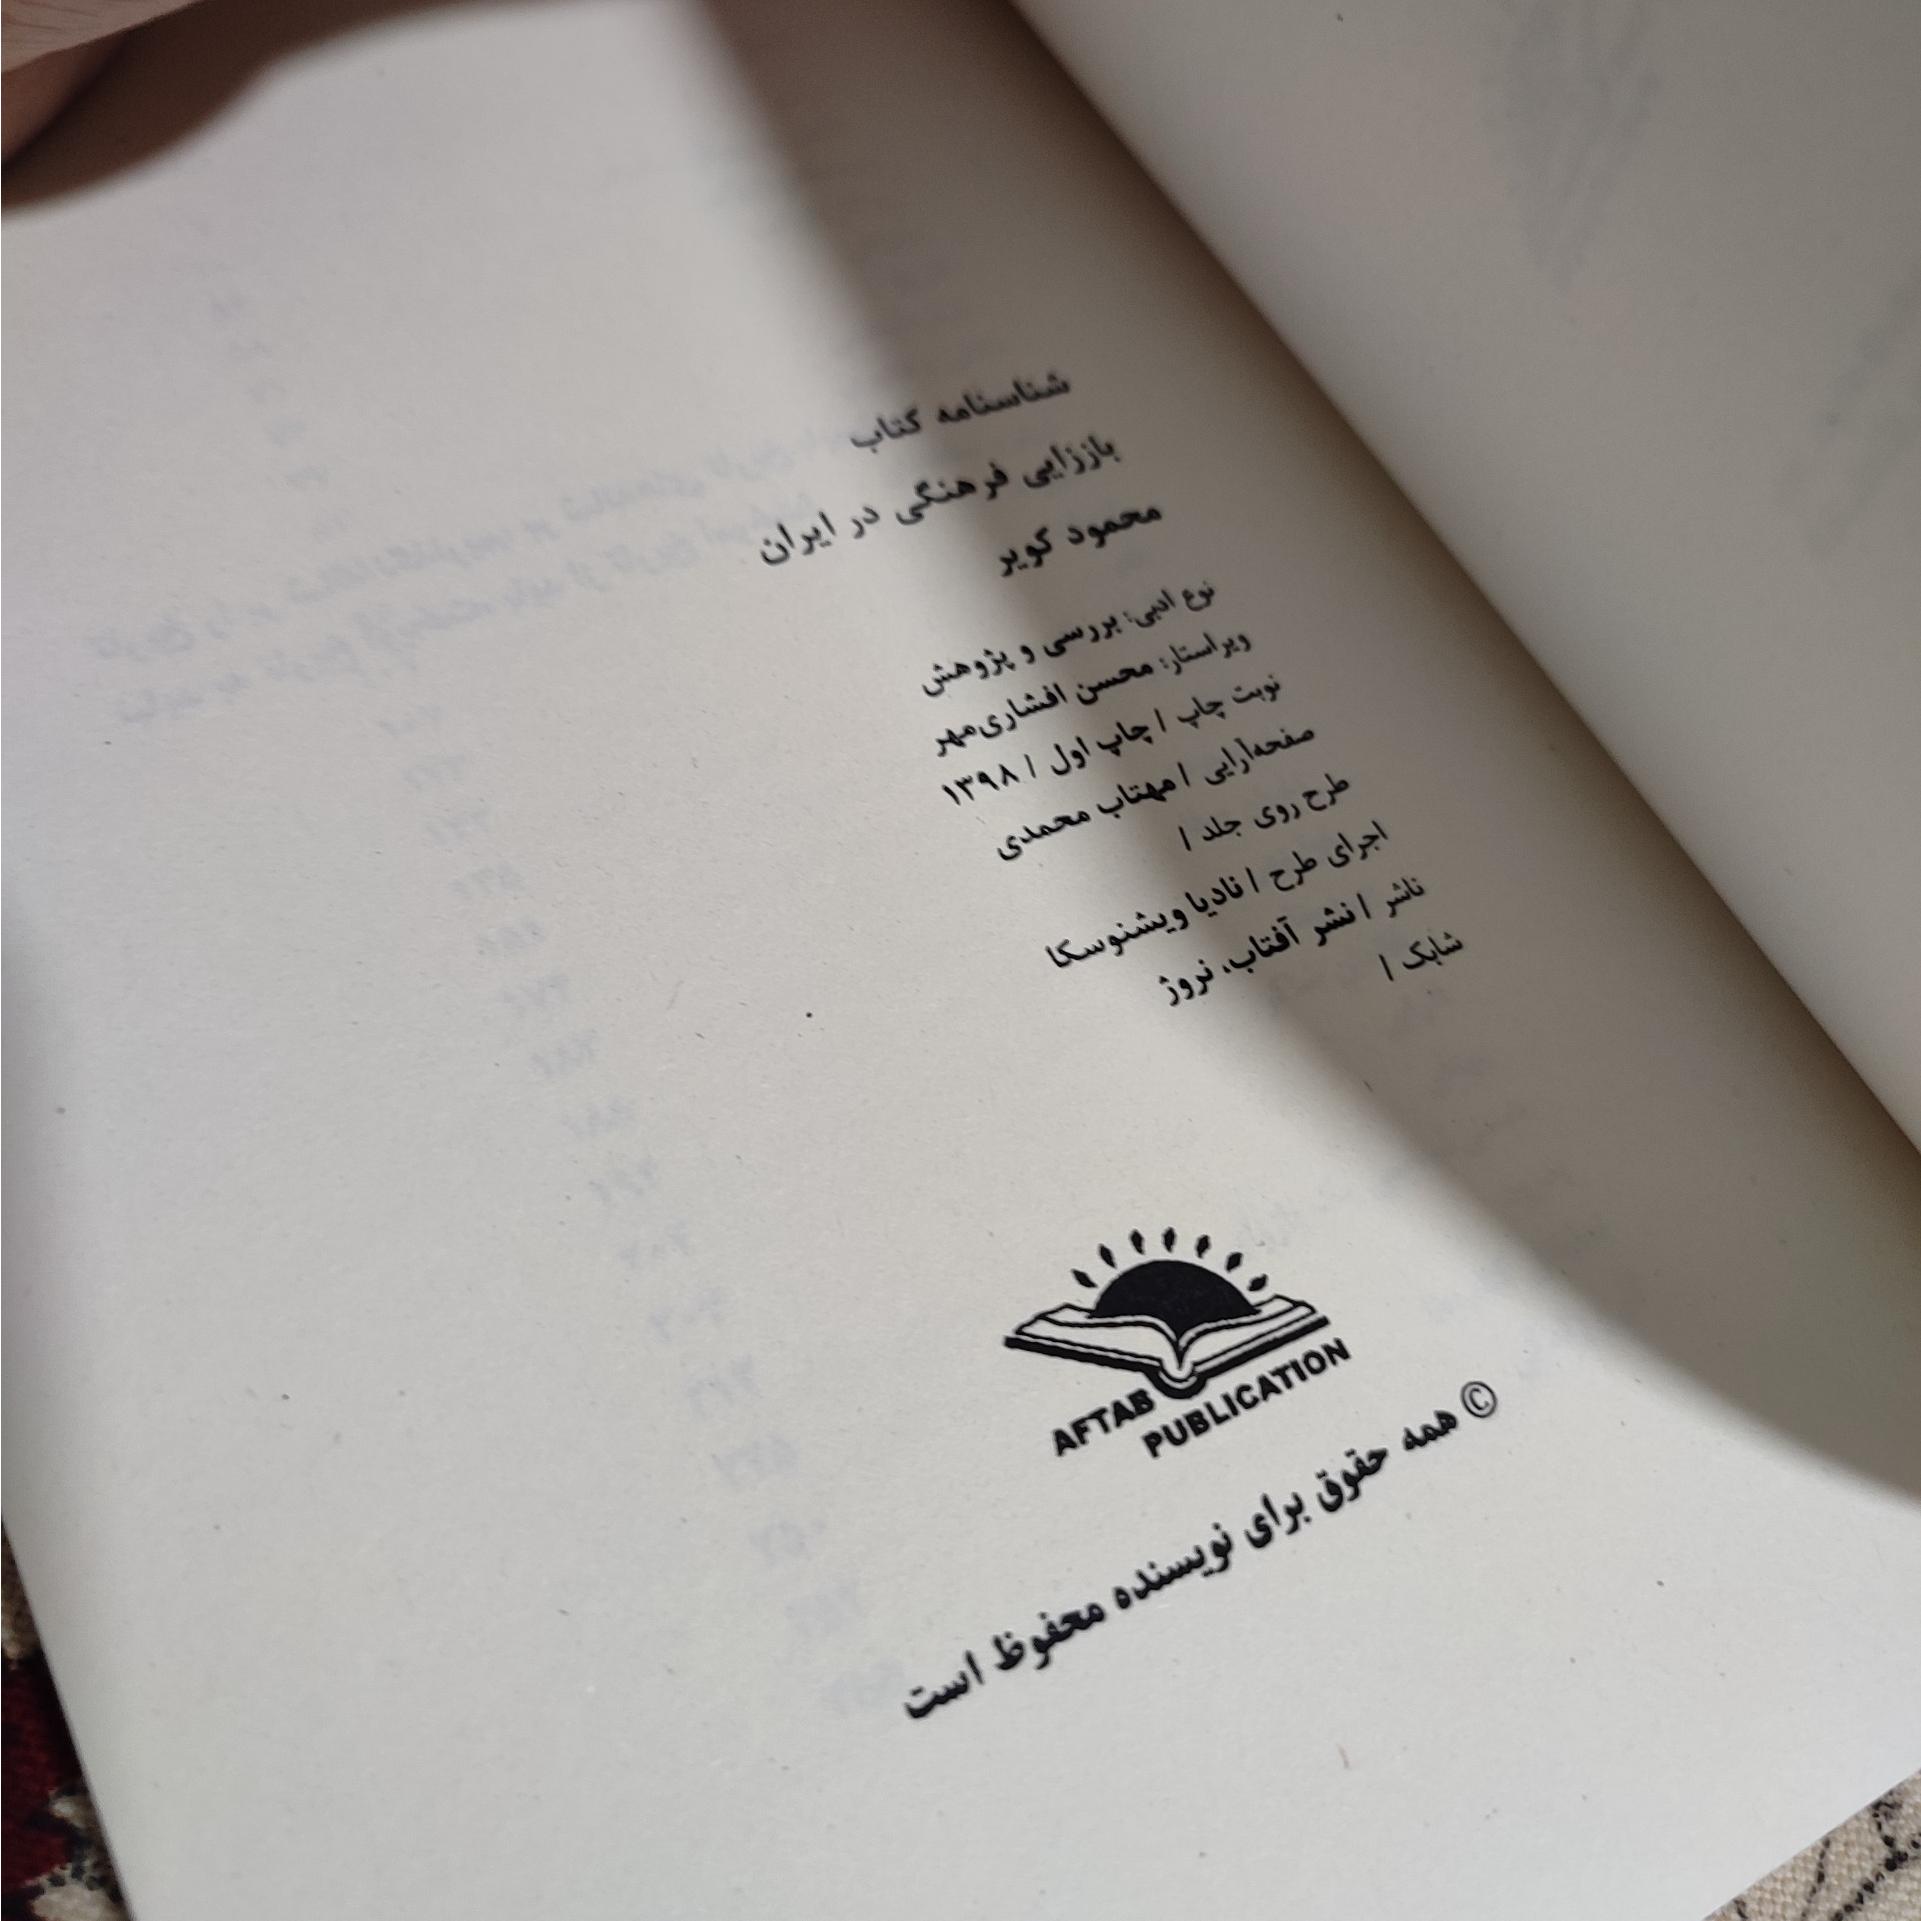 شناسنامه کتاب
باززایی فرهنگی در ایران
محمود کویر
نوع ادبی: بررسی و پژوهش
ویراستار: محسن افشاری‌مهر
نوبت چاپ / چاپ اول / ۱۳۹۸
صفحه‌آرایی / مهتاب محمدی
طرح روی جلد /
اجرای طرح / نادیا ویشنوسکا
ناشر / نشر آفتاب، نروژ
شابک /
AFTAB
PUBLICATION
© همه حقوق برای نویسنده محفوظ است